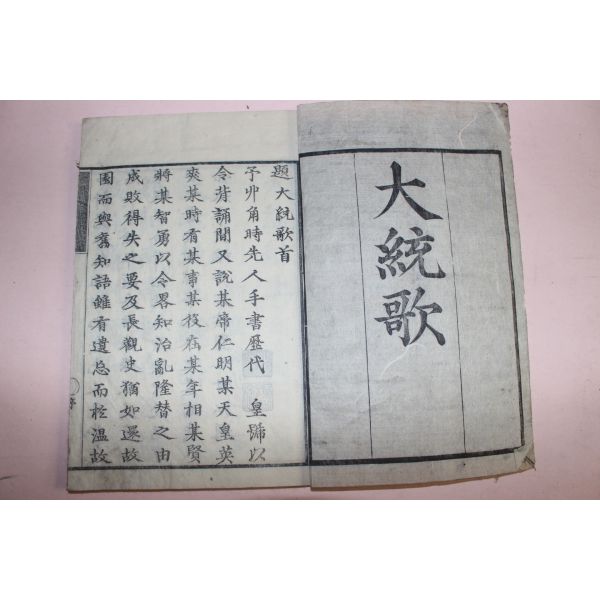 大統歌
題大統歌首
予丱角時先人手書歴代　皇號以
令背誦間又說某帝仁明某天皇英
爽某時有某事某役在某年相某賢
將某智勇以令畧知治亂隆替之由
成敗得失之要及長觀史猶如還故
園而興舊知語雖有遺忘而於溫故